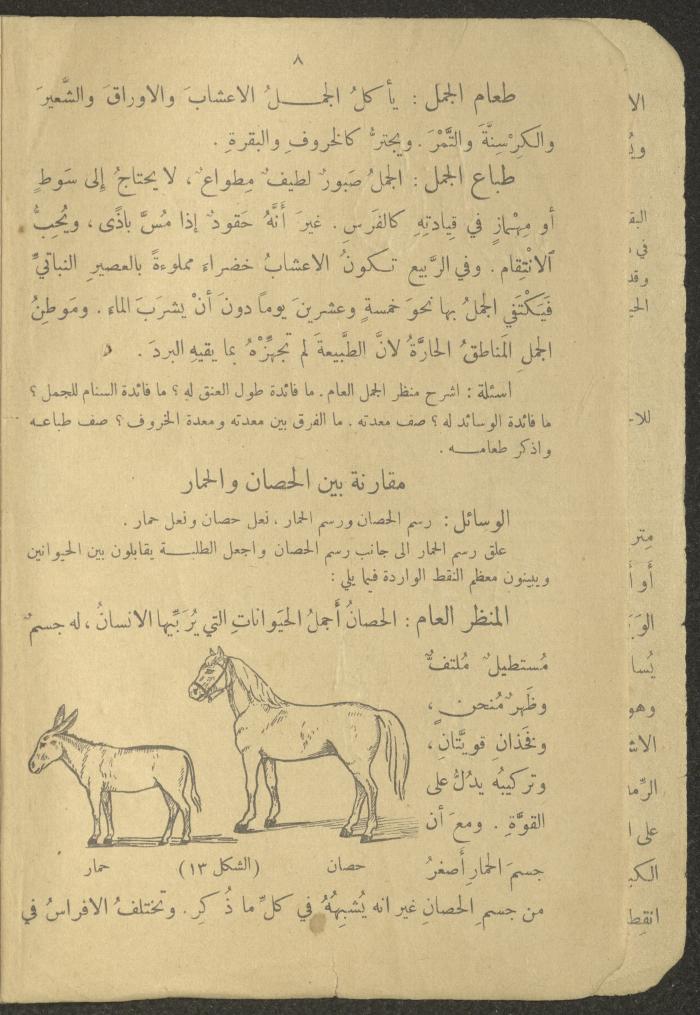 ٨
طعام الجمل : يأكلُ الجمـــلُ الاعشابَ والاوراقَ والشَّعيرَ
والكِرْسِنَّةَ والتَّمْرَ . ويجترُّ كالخروفِ والبقرةِ .
طباع الجمل : الجملُ صَبورٌ لطيفٌ مِطواعٌ ، لا يحتاجُ إلى سَوطٍ
أو مِهْمازٍ في قِيادتِهِ كالفَرَسِ . غيرَ أَنَّهُ حَقودٌ إذا مُسَّ باذًى ، ويُحِبُّ
آلانْتِقام . وفي الرَّبيع تـكونُ الاعشابُ خضراءَ مملوءةً بالعصيرِ النباتيِّ
فَيَكْتَفي الجملُ بها نحوَ خمسةٍ وعشرينَ يوماً دونَ أنْ يشربَ الماء . ومَوطِنُ
الجملِ المَناطقُ الحارَّةُ لانَّ الطَّبيعةَ لم تجهِّزْهُ بما يقيهِ البردَ .
اسئلة : اشرح منظر الجمل العام . ما فائدة طول العنق له ؟ ما فائدة السنام للجمل ؟
ما فائدة الوسائد له ؟ صف معدته . ما الفرق بين معدته ومعدة الخروف ؟ صف طباعـه
واذكر طعامـــه .
مقارنة بين الحصان والحمار
الوسائل : رسم الحصان ورسم الحمار ، نعل حصان ونعل حمار .
علق رسم الحمار الى جانب رسم الحصان واجعل الطلبــة يقابلون بين الحيوانين
ويبينون معظم النقط الواردة فيما يلي :
المنظر العام : الحصانُ أَجملُ الحَيَواناتِ التي يُرَبِّيها الانسانُ ، له جسمٌ
مُستطيلٌ مُلتفٌّ
وظَهرٌ مُنحنٍ ،
وفَخَذانِ قويَّتانِ ،
وتركيبُه يدُلُّ على
القوَّةِ . ومعَ أن
جسمَ الحمارِ أَصغرُ
حصان
(الشكل ١٣)
حمار
من جسمِ الحصانِ غير انه يُشبِهُهُ في كلِّ ما ذُكِر . وتختلفُ الافراسُ في
الا
البقـ
في
وقد
الحيـ
للاـ
مِتر
أَو أ
يُسا
وهو
الاشـ
الرِّمـ
على ا
الكبـ
انقِطـ